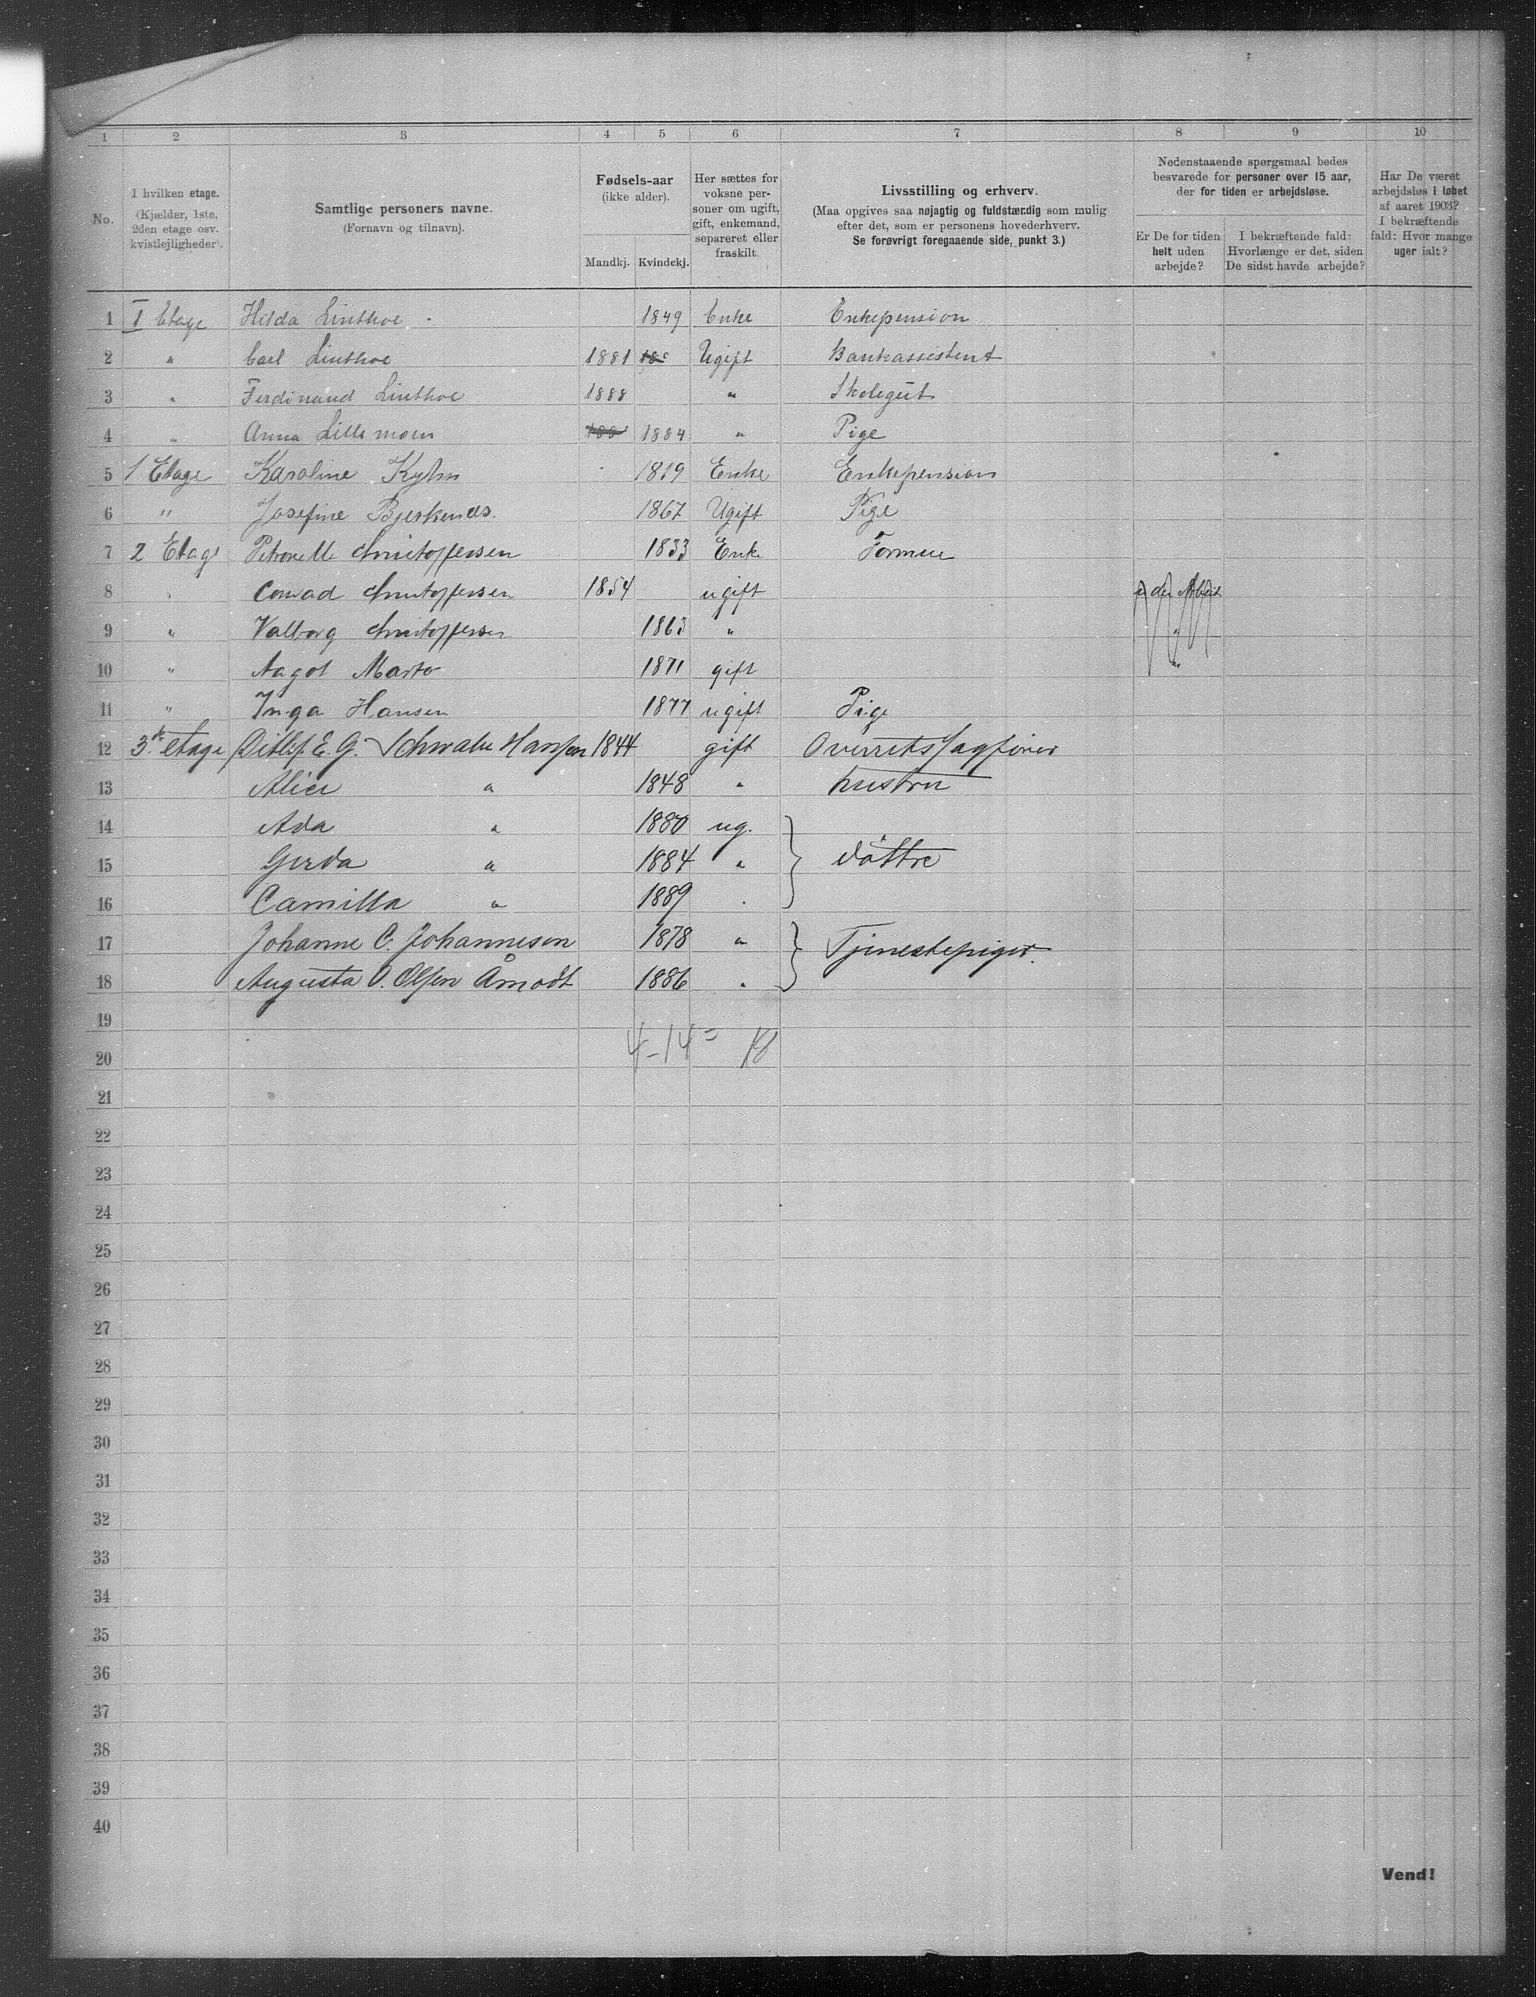 1 2 3 4 5 6 7 8 9 10
No.
I hvilken etage.
(Kjælder, 1ste,
2den etage osv.
kvistlejligheder).
Samtlige personers navne.
(Fornavn og tilnavn).
Fødsels-aar
(ikke alder).
Mandkj. Kvindekj.
Her sættes for
voksne per-
soner om ugift,
gift, enkemand,
separeret eller
fraskilt.
Livsstilling og erhverv.
(Maa opgives saa nøjagtig og fuldstændig som mulig
efter det, som er personens hovederhverv.
Se forøvrigt foregaaende side, punkt 3.)
Nedenstaaende spørgsmaal bedes
besvarede for personer over 15 aar,
der for tiden er arbejdsløse.
Er De for tiden
helt uden
arbejde?
I bekræftende fald:
Hvorlænge er det, siden
De sidst havde arbejde?
Har De været
arbejdsløs i løbet
af aaret 1903?
I bekræftende
fald: Hvor mange
uger ialt?
1 I Etage Hilda Linthoe 1849 Enke Enkepension
2 " Carl Linthoe 1881 Ugift Bankassistent
3 " Ferdinand Linthoe 1888 " Skolegut
4 " Anna Lillemoen 1884 " Pige
5 1 Etage Karoline Kyhn 1819 Enke Enkepension
6 " Josefine Bjerkenes. 1867 Ugift Pige
7 2 Etage Petronelle Christoffersen 1833 Enke Formue
8 " Conrad Christoffersen 1854 ugift
9 " Valborg Christoffersen 1863 "
10 " Aagot 1871 gift
11 " Inga Hansen 1877 ugift Pige
12 3die etage Ditlef E. G. Schwabe Hanssen 1844 gift Overretssagfører
13 Alice " 1848 " hustru
14 Ada " 1880 ug.
15 Gerda " 1884 " døttre
16 Camilla " 1889 "
17 Johanne C. Johannesen 1878 " Tjenestepiger.
18 Augusta O. Olsen Åmodt 1886 "
19
4-14= 18
20
21
22
23
24
25
26
27
28
29
30
31
32
33
34
35
36
37
38
39
40
Vend!